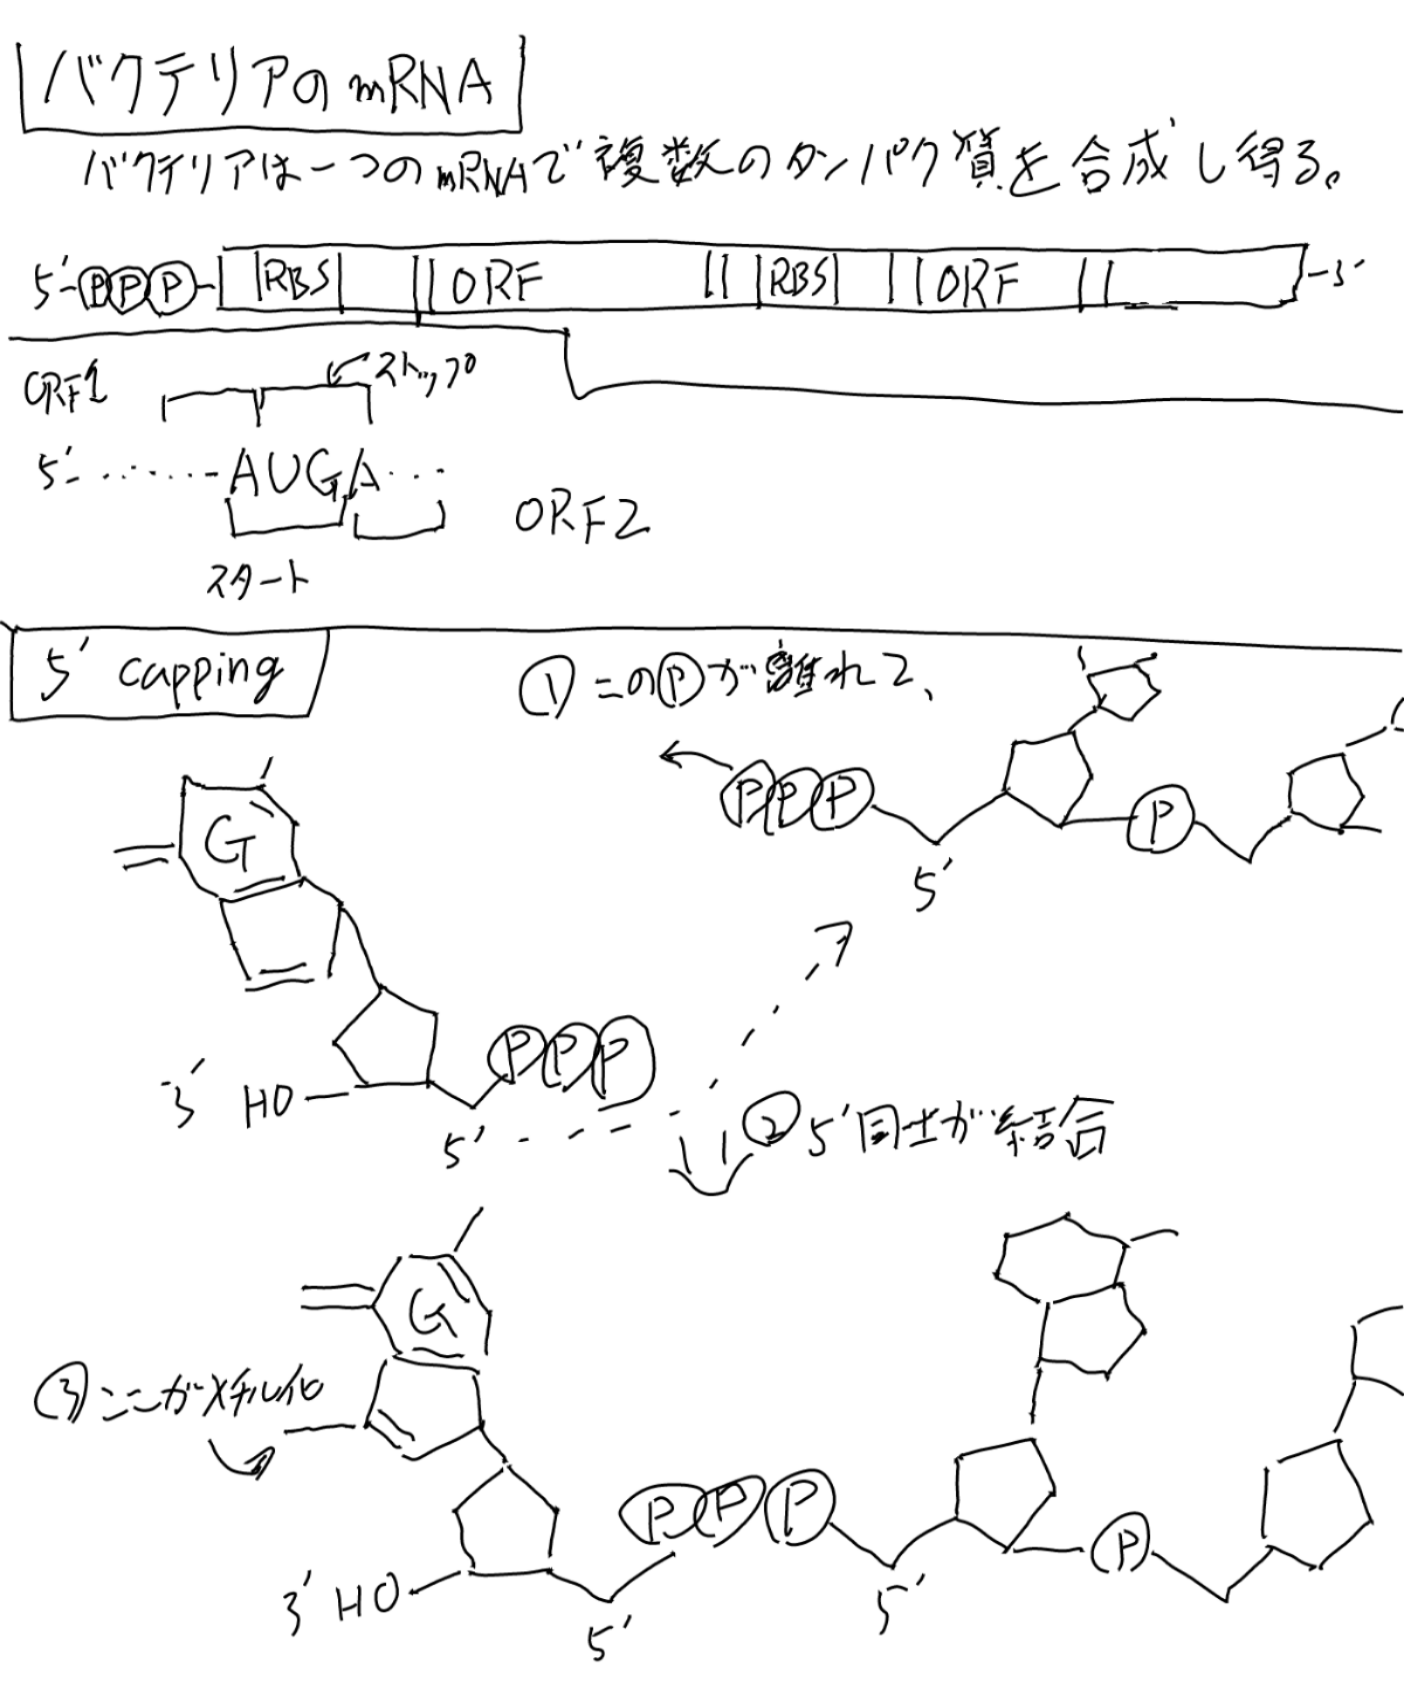 バクテリアのmRNA
バクテリアは一つのmRNAで複数のタンパク質を合成し得る。
5'-PPP- RBS ORF RBS ORF -3'
ORF1 ストップ
5'-......-AUGA...
ORF2
スタート
5' capping
①このPが離れて、
G
PPP P
5'
PPP
3' HO
5'
②5'同士が結合
G
③ここがメチル化
PPP P
3' HO
5' 5'